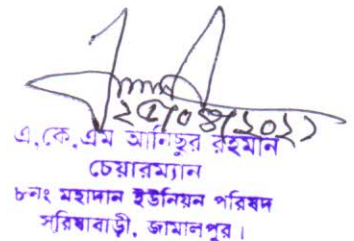 ২৫/০৪/২০২১
এ,কে,এম আনিছুর রহমান
চেয়ারম্যান
৮নং মহাদান ইউনিয়ন পরিষদ
সরিষাবাড়ী, জামালপুর।